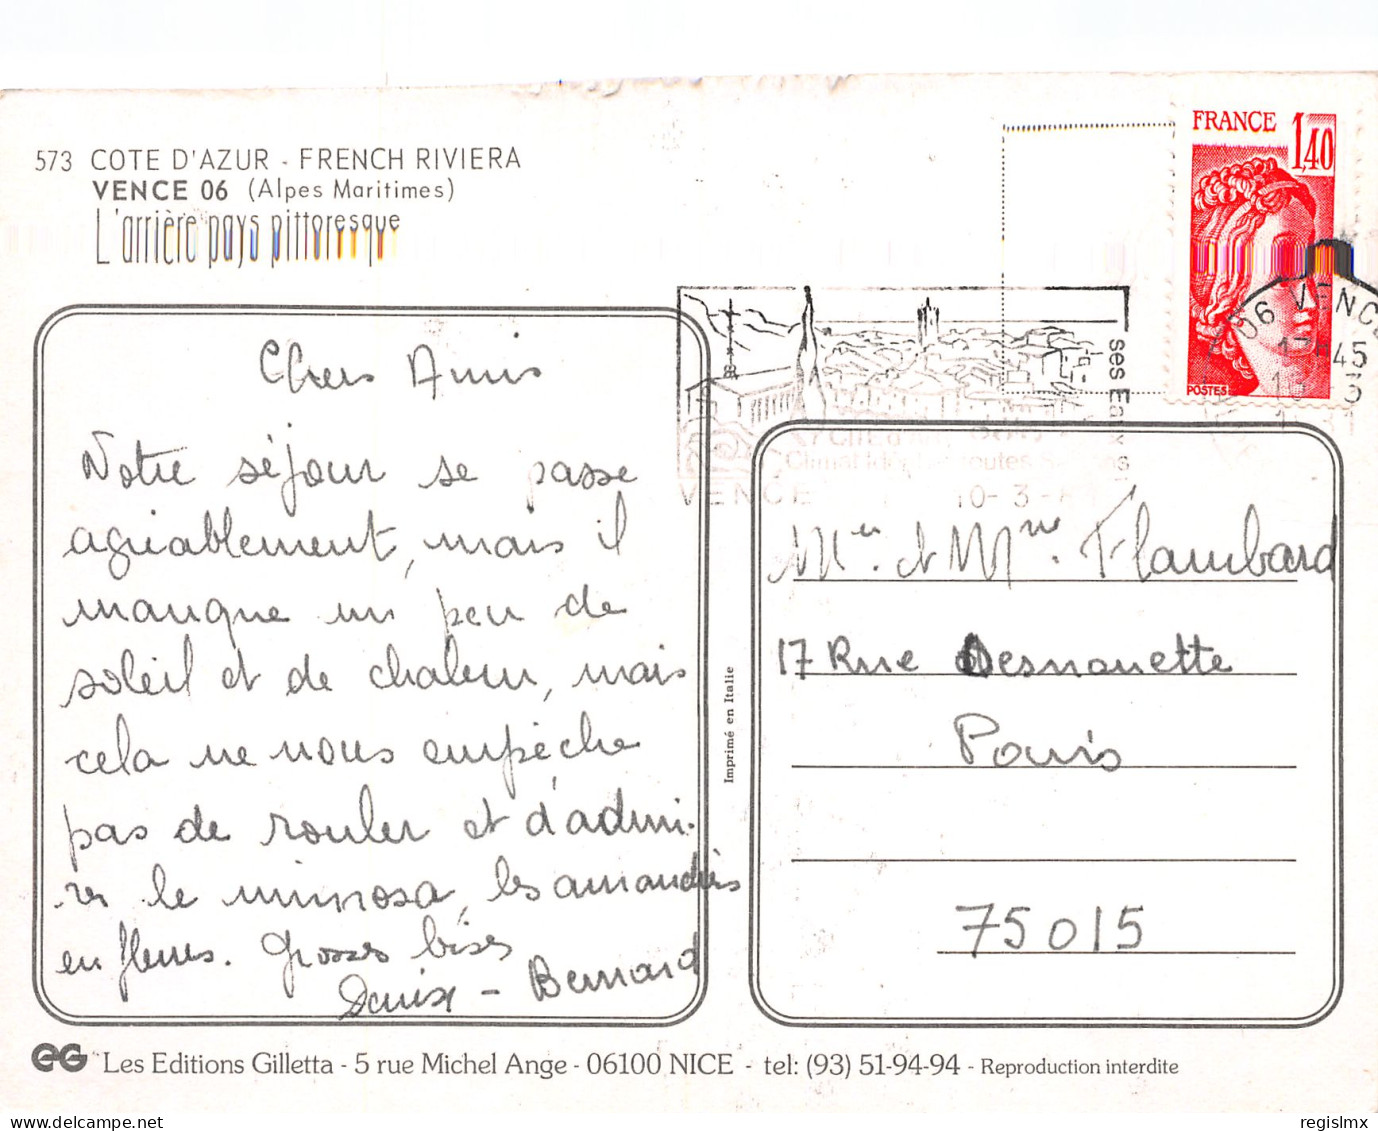 573 COTE D'AZUR - FRENCH RIVIERA
VENCE 06 (Alpes Maritimes)
L'arrière pays pittoresque
FRANCE 1,40
POSTES
06 VENCE
17H45
10-3
ses Eaux
Climat Idéal toutes
VENCE
10-3-
Chers Amis
Notre séjour se passe
agréablement, mais il
manque un peu de
soleil et de chaleur, mais
cela ne nous empêche
pas de rouler et d'admi-
rer le mimosa, les amandiers
en fleurs. Grosses bises
Bernard
Imprimé en Italie
Mr. et Mme. Flambard
17 Rue Desnouette
Paris
75015
EG Les Editions Gilletta - 5 rue Michel Ange - 06100 NICE - tel: (93) 51-94-94 - Reproduction interdite
regislmx